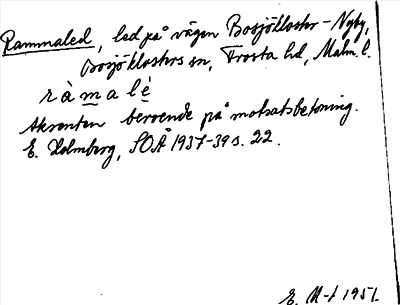 Rammaled, led på vägen Bosjökloster-Nyby,
Bosjöklosters sn, Frosta hd, Malm. l.
ràmalè
Akcenten beroende på motsatsbetoning.
E. Holmberg, SOÅ 1937-39 s. 22.
E. M-t 1951.